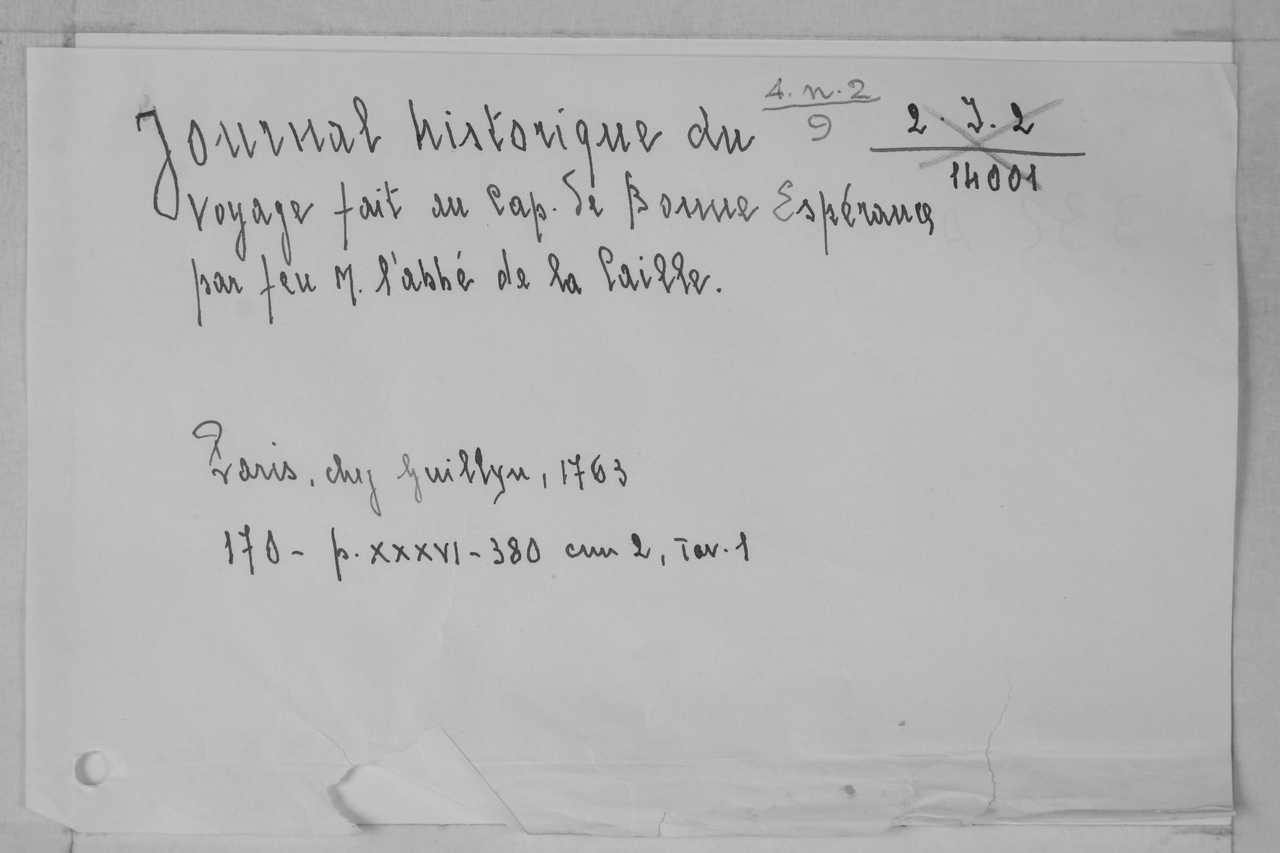 Journal historique du
4. n. 2
9
2. J. 2
14001
voyage fait au Cap. de Bonne Espérance
par feu M. l'abbé de la Caille.
Paris, chez Guillyn, 1763
170 - p. XXXVI - 380 cm 2, Tav. 1